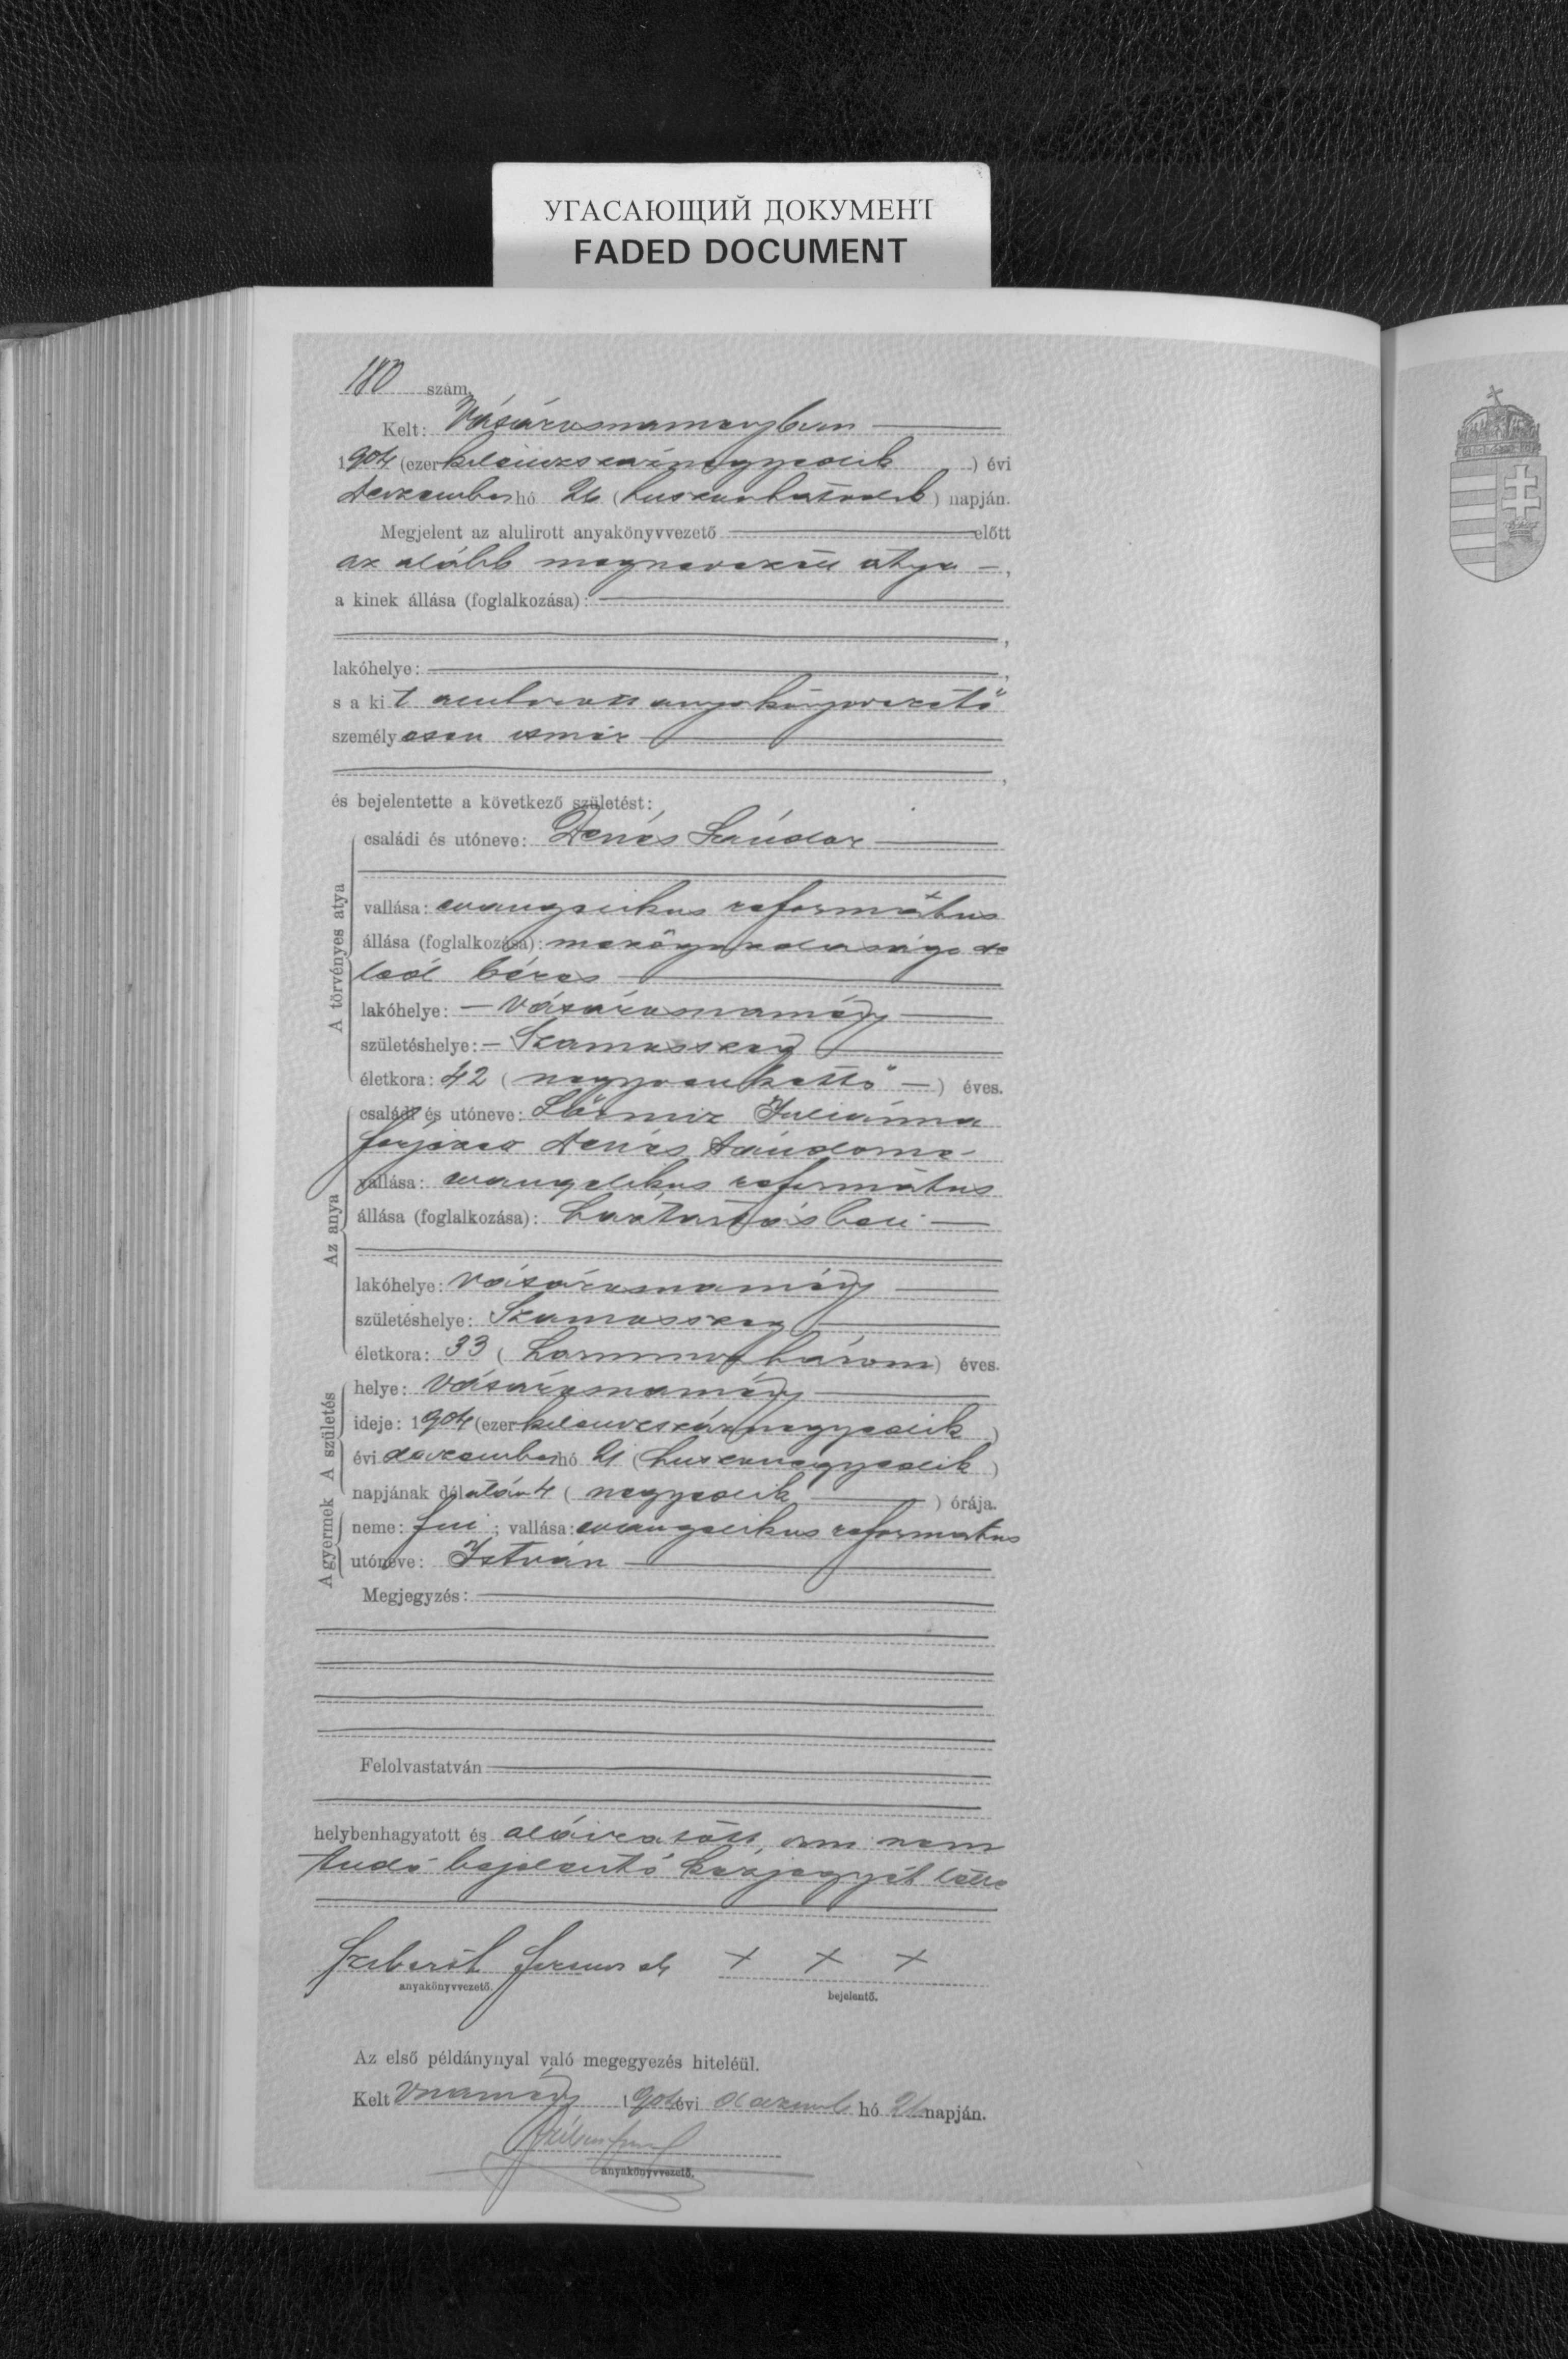 УГАСАЮЩИЙ ДОКУМЕНТ
FADED DOCUMENT
180 szám.
Kelt: Vásárosnaményban
1904 (ezerkilenczszáznegyedik) évi
Deczember hó 26 (huszonhatodik) napján.
Megjelent az alulirott anyakönyvvezető előtt
az alább megnevezett atya,
a kinek állása (foglalkozása):
lakóhelye:
s a kit anyakönyvvezető
személyesen ismér
és bejelentette a következő születést:
A törvényes atya
családi és utóneve: Dénes Sándor
vallása: evangelikus református
állása (foglalkozása): mezőgazdasági cse
léd béres
lakóhelye: – Vásárosnamény
születéshelye: – Szamosszeg
életkora: 42 (negyvenkettő –) éves.
Az anya
családi és utóneve: Juliánna
férjezett Dénes Sándorné
vallása: evangelikus református
állása (foglalkozása): háztartásbeli
lakóhelye: Vásárosnamény
születéshelye: Szamosszeg
életkora: 33 (harminczhárom) éves.
A gyermek A születés
helye: Vásárosnamény
ideje: 1904 (ezerkilenczszáznegyedik)
évi deczember hó 24 (huszonnegyedik)
napjának délután 4 (negyedik) órája.
neme: fiu; vallása: evangelikus reformatus
utóneve: István
Megjegyzés:
Felolvastatván
helybenhagyatott és aláiratott, irni nem
tudó bejelentő kézjegyét látta
Ferencz sk + + +
anyakönyvvezető. bejelentő.
Az első példánynyal való megegyezés hiteléül.
Kelt Vnamény 1904 évi deczemb hó 26 napján.
anyakönyvvezető.